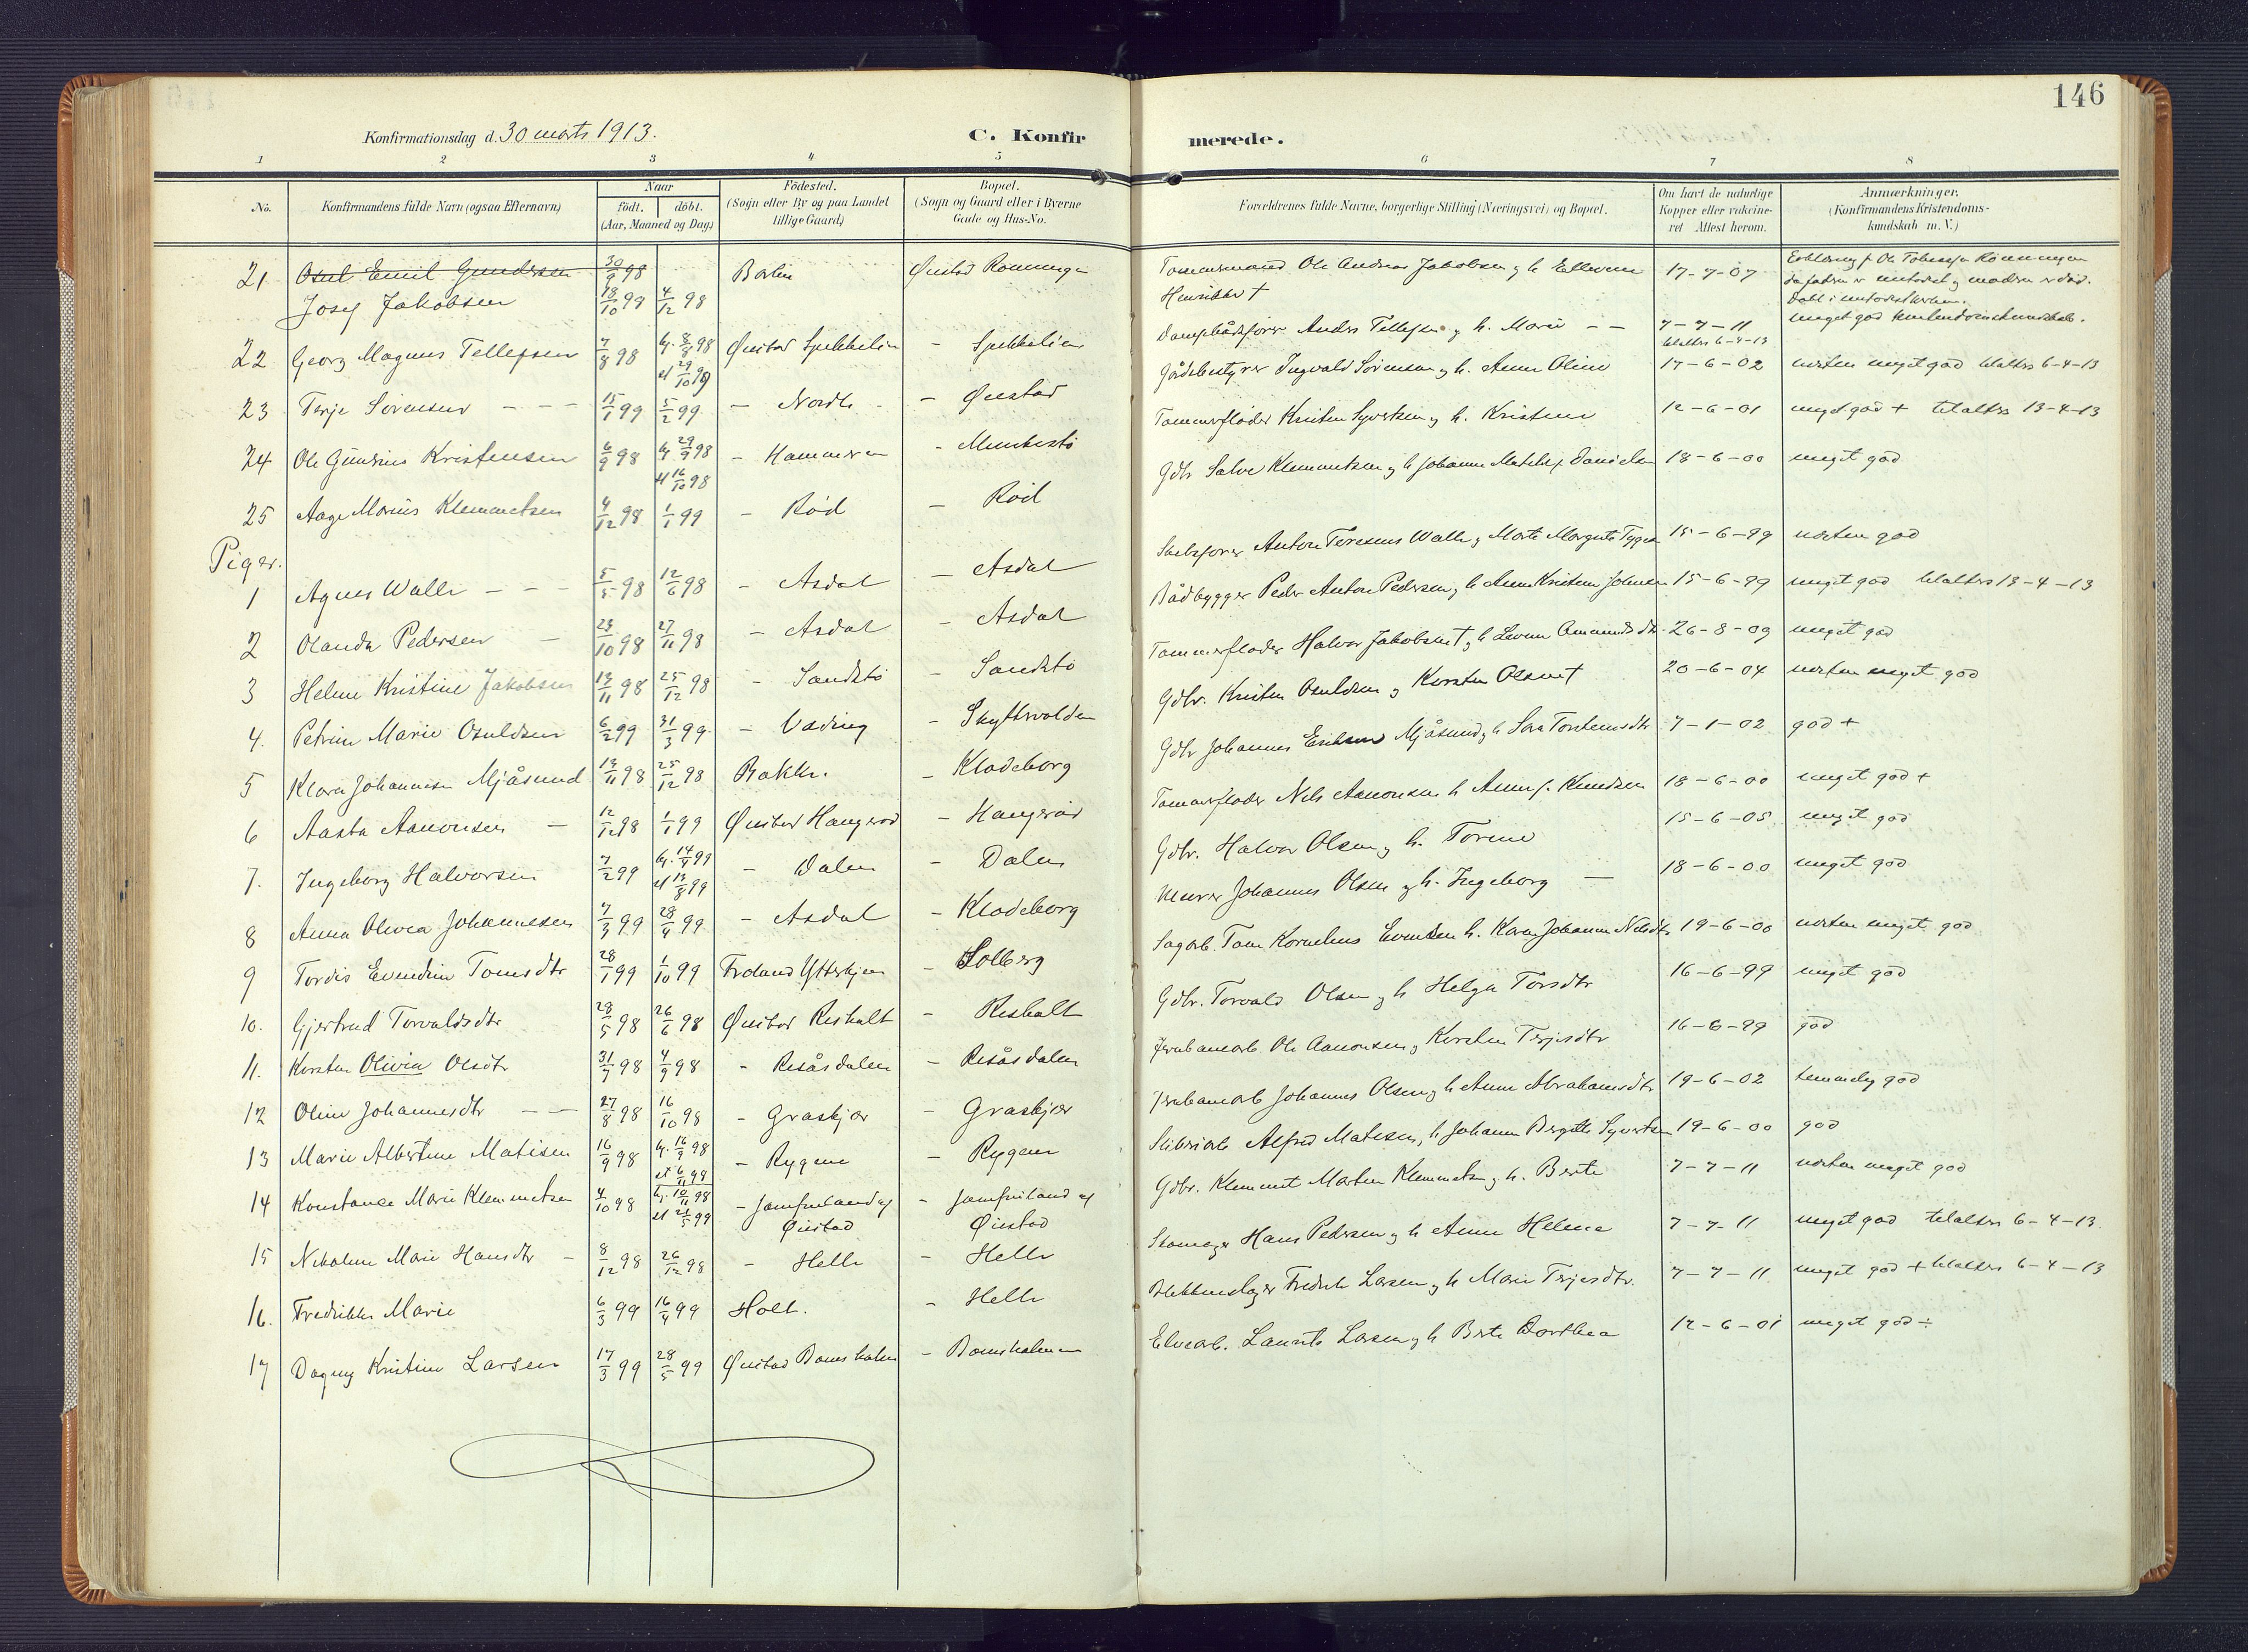 146
Konfirmationsdag d. 30 marts 1913.
C. Konfir
merede.
1 2 3 4 5 6 7 8
No.
Konfirmandens fulde Navn (ogsaa Efternavn)
Naar
født. døbt.
(Aar, Maaned og Dag)
Fødested.
(Sogn eller By og paa Landet
tillige Gaard)
Bopæl.
(Sogn og Gaard eller i Byerne
Gade og Hus-No.
Forældrenes fulde Navne, borgerlige Stilling (Næringsvei) og Bopæl.
Om havt de naturlige
Kopper eller vakcine-
ret Attest herom.
Anmærkninger.
(Konfirmandens Kristendoms-
kundskab m. V.)
21 Osul Emil Gundersen 30/9 98
Josef Jakobsen 18/10 99 4/12 98 Øiestad Tømmermand Ole Andreas Jakobsen og h. 17-7-07
Henrikke †
22 Georg Magnus Tellefsen 7/8 98 hj. 8/8 98 Øiestad Spekkelien - Spekkelien Anders Tellefsen og h. Marie - - 7-7-11 meget god
st 29/10 99 tilalters 6-4-13
23 Terje Sørensen - - - 15/1 99 5/2 99 - - Øiestad Gårdbestyrer Ingvald Sørensen og h. Anne Oline 17-6-02 næsten meget god tilalters 6-4-13
24 Ole Gunerius Kristensen 6/9 98 hj. 29/9 98 - Hammeren - Tømmerfløder Kristen Syvertsen og h. Kristine 12-6-01 meget god + tilalters 13-4-13
st 16/10 98
25 Aage Marius Klemmetsen 4/12 98 1/1 99 - Rød - Rød Gdbr Salve Klemmetsen og h Johanne Danielsen 18-6-00 meget god
Piger.
1 Agnes Walle - - - 5/5 98 12/6 98 - Asdal - Asdal Anton Walle og Marte Margrete 15-6-99 næsten god
2 Olanda Pedersen - 23/10 98 27/11 98 - Asdal - Asdal Bådbygger Peder Anton Pedersen og h. Anne Kristine 15-6-99 meget god tilalters 13-4-13
3 Helene Kristine Jakobsen 13/11 98 25/12 98 - Sandstø - Sandstø Tømmerfløder Halvor Jakobsen † og h 26-8-09 meget god
4. Petrine Marie Osuldsen 6/2 99 31/3 99 - - Gdbr. Kristen Osuldsen og Kirsten Olsen † 20-6-04 næsten meget god
5 Klara Johannesen Mjåsund 13/11 98 25/12 98 Bakke. - Klodeborg Gdbr Johannes Eriksen Mjåsund og h Sara Torstensdtr 7-1-02 god +
6 Aasta Aanonsen - 12/12 98 1/1 99 Øiestad - Tømmerfløder Nils Aanonsen h Anne f. Knudsen 18-6-00 meget god +
7. Ingeborg Halvorsen 7/2 99 hj. 14/4 99 - Dalen - Dalen Gdbr. Halvor Olsen og h. Torine 15-6-05 meget god
st 13/8 99
8 Anna Olivea Johannesen 7/3 99 28/4 99 - Asdal - Klodeborg Murer Johannes Olsen og h. Ingeborg - 18-6-00 meget god
9 Tordis Evendine Tomsdtr 28/1 99 1/10 99 Froland - Solberg Sagarb. Tom Kornelius Evensen h. Karen Johanne Nilsdtr 19-6-00 næsten meget god
10. Gjertrud Torvaldsdtr 28/5 98 26/6 98 Øiestad Reshalt - Reshalt Gdbr. Torvald Olsen og h Helga Torsdtr 16-6-99 meget god
11. Kirsten Olivia Olsdtr 31/7 98 4/9 98 - Resåsdalen - Resåsdalen Jernbanearb. Ole Aanonsen og Kirsten Terjesdtr 16-6-99 god
12 Oline Johannesdtr - - 27/8 98 16/10 98 - Graskjær - Graskjær Jernbanearb Johannes Olsen og h Anne Abrahamsdtr 19-6-02 temmelig god
13 Marie Albertine Matisen 16/9 98 hj. 16/9 98 - Rygene - Rygene Sliberiarb Alfred Matisen, h Johanne Birgitte Syvertsen 19-6-00 god
st 6/11 98
14 Konstance Marie Klemmetsen 4/10 98 hj. 10/11 98 - Jomfruland af - Jomfruland af Gdbr. Klemmet Martin Klemmetsen og h. Berte 7-7-11 næsten meget god
st 21/5 99 Øiestad Øiestad
15 Nikoline Marie Hansdtr - 8/12 98 26/12 98 - Helle - Helle Skomager Hans Pedersen og h Anne Helene 7-7-11 meget god tilalters 6-4-13.
16. Fredrikke Marie 6/3 99 16/4 99 Holt. - Helle Blikkenslager Fredrik Larsen og h Marie Terjesdtr. 7-7-11 meget god + tilalters 6-4-13
17 Dagny Kristine Larsen 17/3 99 28/5 99 Øiestad Bomsholmen - Bomsholmen Elvearb. Laurits Larsen og h Berte Dorthea 12-6-01 meget god ÷